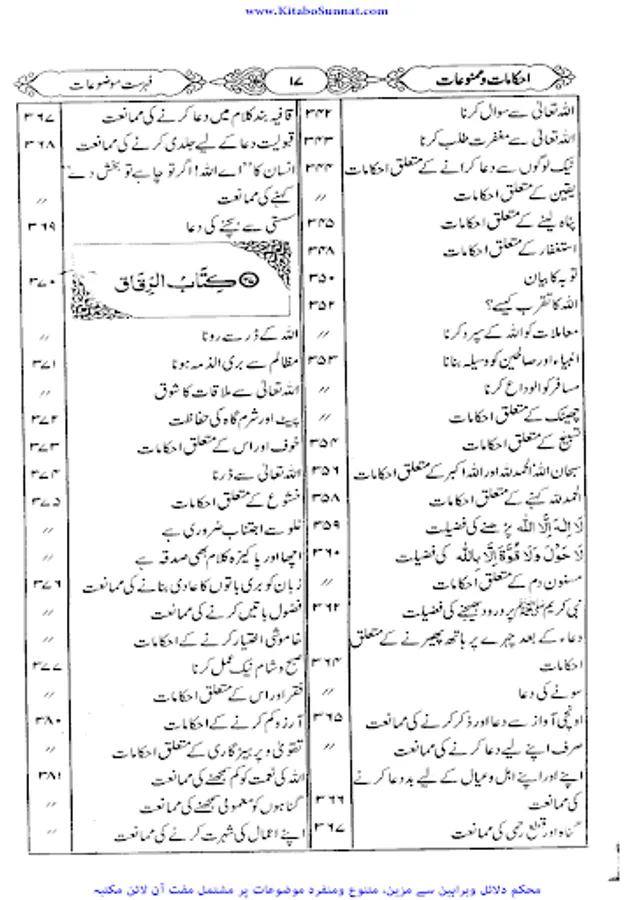 www.KitaboSunnat.com
احکامات و ممنوعات
۱۷
فہرست موضوعات
اللہ تعالیٰ سے سوال کرنا ۳۴۲
اللہ تعالیٰ سے مغفرت طلب کرنا ۳۴۳
نیک لوگوں سے دعا کرانے کے متعلق احکامات ۳۴۴
یقین کے متعلق احکامات ״
پناہ لینے کے متعلق احکامات ۳۴۵
استغفار کے متعلق احکامات ۳۴۸
توبہ کا بیان ۳۵۰
اللہ کا تقرب کیسے؟ ۳۵۲
معاملات کو اللہ کے سپرد کرنا ״
انبیاء اور صالحین کو وسیلہ بنانا ۳۵۳
مسافر کو الوداع کرنا ״
چھینک کے متعلق احکامات ״
تسبیح کے متعلق احکامات ۳۵۴
سبحان اللہ الحمدللہ اور اللہ اکبر کے متعلق احکامات ۳۵۶
الحمد للہ کہنے کے متعلق احکامات ۳۵۸
لَا اِلٰہَ اِلَّا اللہ پڑھنے کی فضیلت ۳۵۹
لَا حَوْلَ وَلَا قُوَّۃَ اِلَّا بِاللہِ کی فضیلت ۳۶۰
مسنون دم کے متعلق احکامات ״
نبی کریم ﷺ پر درود بھیجنے کی فضیلت ۳۶۲
دعاء کے بعد چہرے پر ہاتھ پھیرنے کے متعلق
احکامات ۳۶۴
سونے کی دعا ״
اونچی آواز سے دعا اور ذکر کرنے کی ممانعت ۳۶۵
صرف اپنے لیے دعا کرنے کی ممانعت ״
اپنے اور اپنے اہل و عیال کے لیے بددعا کرنے
کی ممانعت ۳۶۶
گناہ اور قطع رحمی کی ممانعت ۳۶۷
قافیہ بند کلام میں دعا کرنے کی ممانعت ۳۶۷
قبولیت دعا کے لیے جلدی کرنے کی ممانعت ۳۶۸
انسان کا "اے اللہ! اگر تو چاہے تو بخش دے"
کہنے کی ممانعت ״
سستی سے بچنے کی دعا ۳۶۹
کِتَابُ الرِّقَاق ۳۷۰
اللہ کے ڈر سے رونا ״
مظالم سے بری الذمہ ہونا ۳۷۱
اللہ تعالیٰ سے ملاقات کا شوق ״
پیٹ اور شرم گاہ کی حفاظت ۳۷۲
خوف اور اس کے متعلق احکامات ۳۷۳
اللہ تعالیٰ سے ڈرنا ۳۷۴
خشوع کے متعلق احکامات ۳۷۵
غلو سے اجتناب ضروری ہے ״
اچھا اور پاکیزہ کلام بھی صدقہ ہے ״
زبان کو بری باتوں کا عادی بنانے کی ممانعت ۳۷۶
فضول باتیں کرنے کی ممانعت ״
خاموشی اختیار کرنے کے احکامات ״
صبح و شام نیک عمل کرنا ۳۷۷
فقر اور اس کے متعلق احکامات ״
آرزو کم کرنے کے احکامات ۳۸۰
تقویٰ و پرہیزگاری کے متعلق احکامات ״
اللہ کی نعمت کو کم سمجھنے کی ممانعت ۳۸۱
گناہوں کو معمولی سمجھنے کی ممانعت ״
اپنے اعمال کی شہرت کرنے کی ممانعت ״
محکم دلائل وبراہین سے مزین، متنوع ومنفرد موضوعات پر مشتمل مفت آن لائن مکتبہ